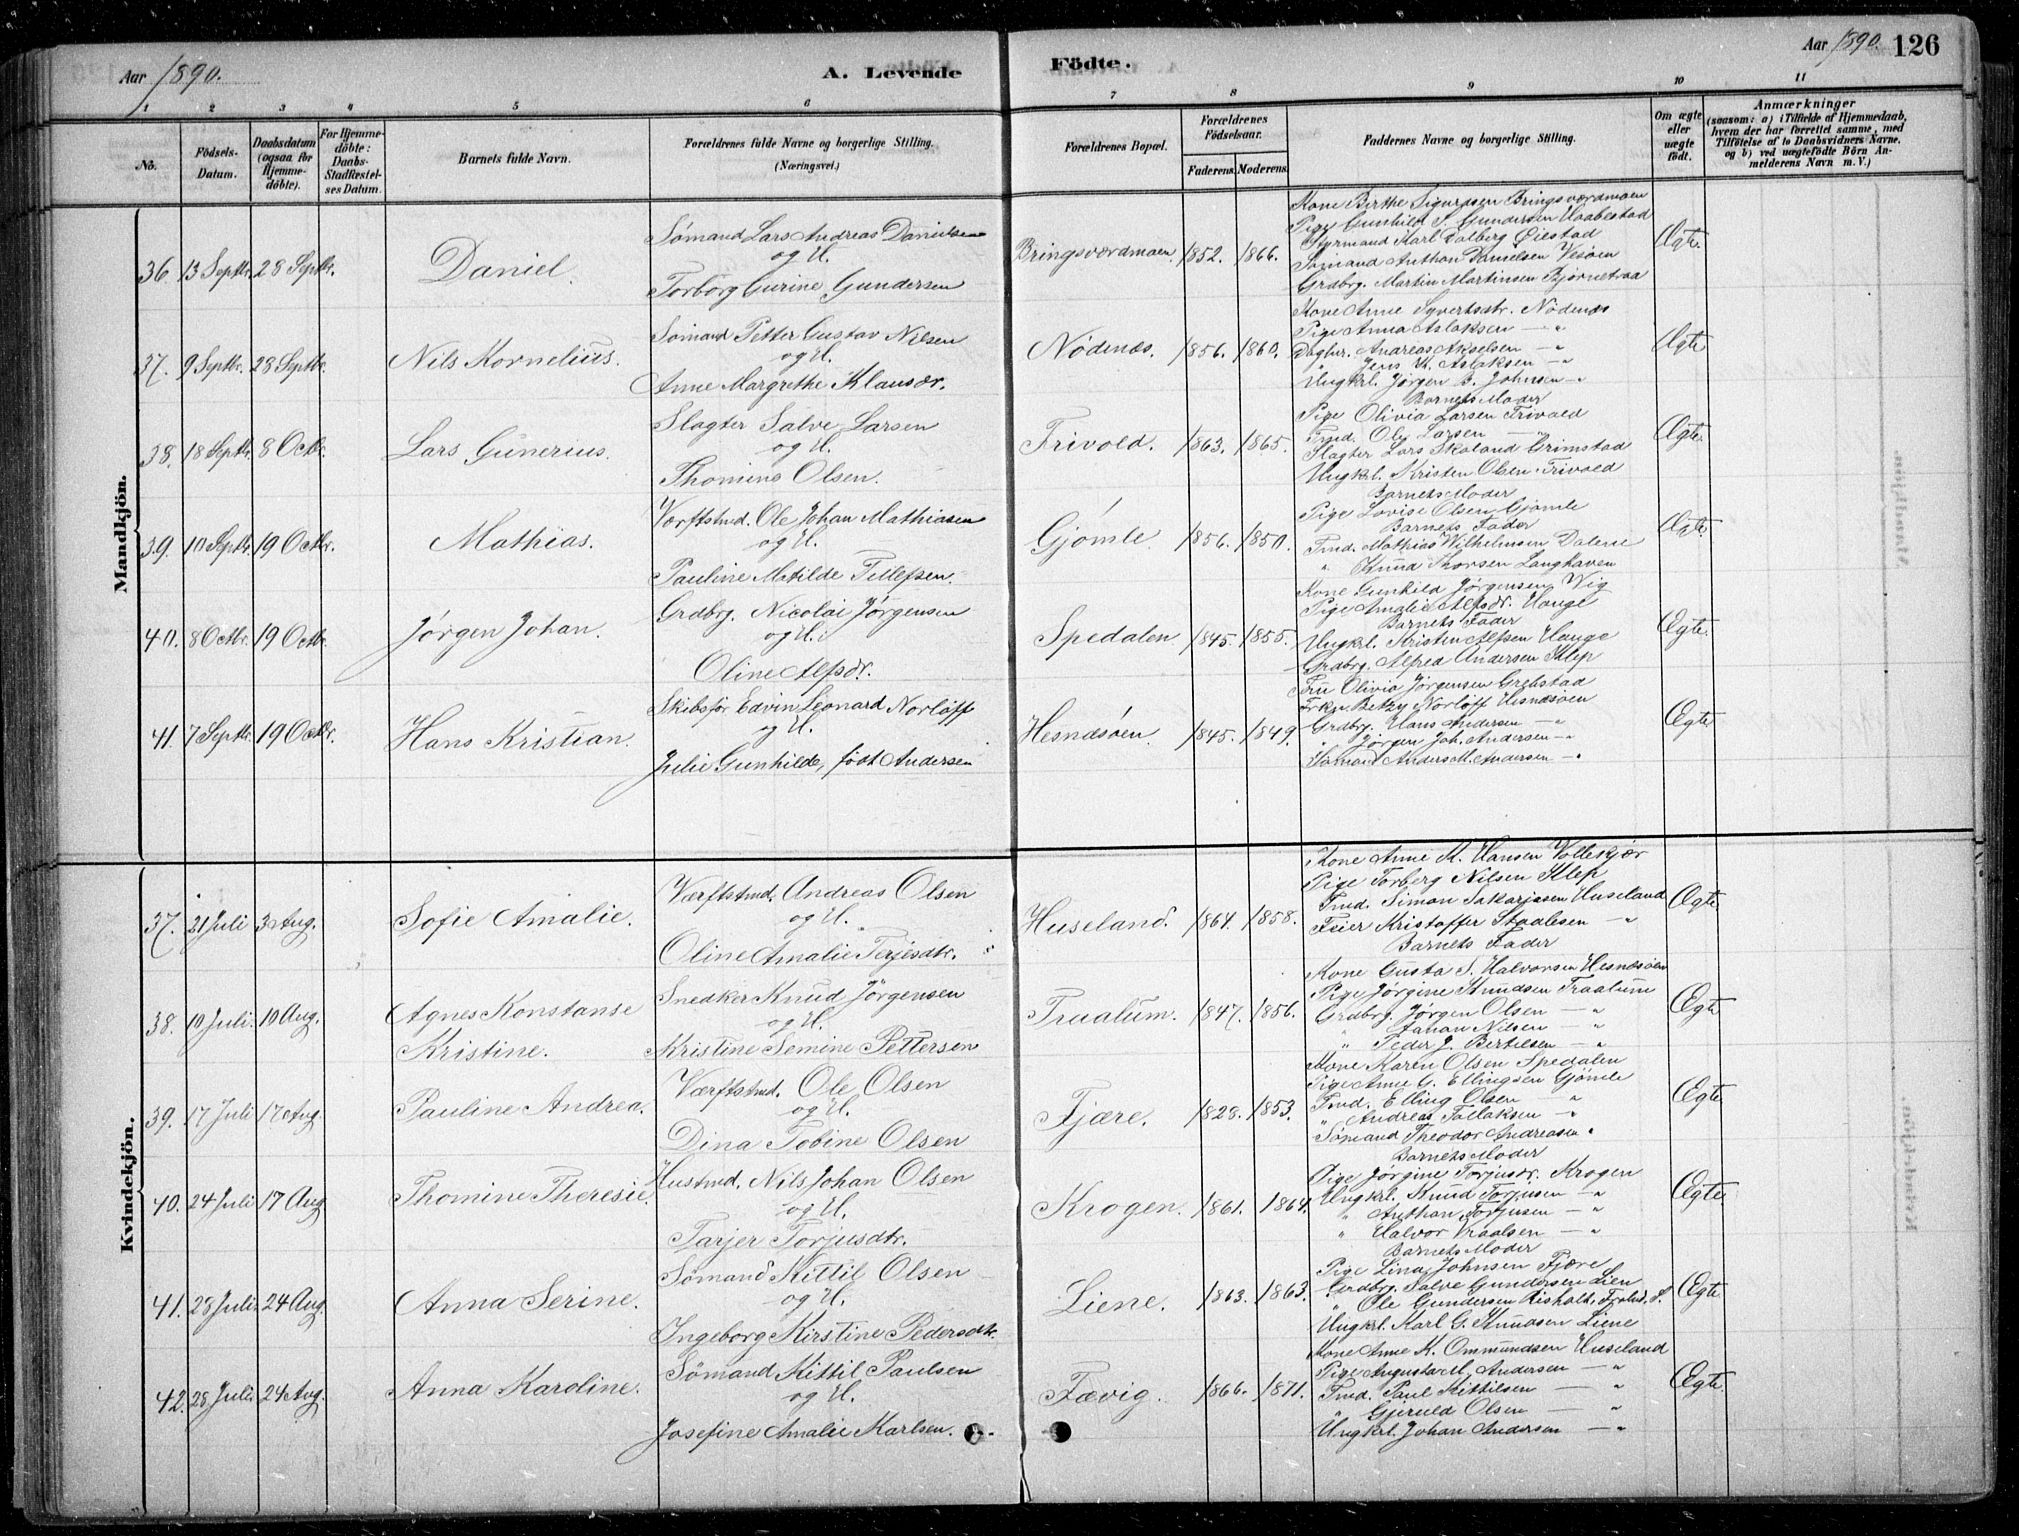 Aar 1890.
A. Levende Födte.
Aar 1890. 126
1 2 3 4 5 6 7 8 9 10 11
No.
Födsels-Datum.
Daabsdatum (ogsaa for Hjemmedöbte).
For Hjemmedöbte: Daabs-Stadfæstelses Datum.
Barnets fulde Navn.
Forældrenes fulde Navne og borgerlige Stilling. (Næringsvei.)
Forældrenes Bopæl.
Forældrenes Födselsaar.
Faderens. Moderens.
Faddernes Navne og borgerlige Stilling.
Om ægte eller uægte født.
Anmærkninger (saasom: a) i Tilfælde af Hjemmedaab, hvem der har forrettet samme, med Tilföielse af to Daabsvidners Navne, og b) ved uægtefödte Börn Anmelderens Navn m. V.)
Mandkjön.
36. 13 Septbr. 28 Septbr. Daniel.
Sømand Lars Andreas Danielsen
og H.
Torborg Gurine Gundersen
Bringsværdmoen. 1852. 1866.
Kone Birthe Sigurdsen Bringsværdmoen
Pige Gunhild S. Gundersen Haabestad
Styrmand Karl Dalberg Øiestad
Sømand Anthon Danielsen Vesøen
Grdbrg. Martin Martinsen Bjørnetraa
Ægte.
37. 9 Septbr. 28 Septbr. Nils Kornelius.
Sømand Petter Gustav Nilsen
og H.
Anne Margrethe Klausdr.
Nödenæs. 1856. 1860.
Kone Anne Syvertsdtr. Nödenæs
Pige Anna Aslaksen — "
Dagbr. Andreas Akselsen — "
" Jens H. Aslaksen — "
Ungkrl. Jørgen B. Johnsen — "
Barnets Moder
Ægte.
38. 18 Septbr. 8 Octbr. Lars Gunerius.
Slagter Salve Larsen
og H.
Thomine Olsen.
Frivold. 1863. 1865.
Pige Olivia Larsen Frivold
Tmd. Ole Larsen — "
Slagter Lars Skaland Grimstad
Ungkrl. Kristen Olsen Frivold
Barnets Moder
Ægte.
39. 10 Septbr. 19 Octbr. Mathias.
Værftstmd. Ole Johan Mathiasen
og H.
Pauline Matilde Tellefsen.
Gjömle. 1856. 1850.
Pige Lovise Olsen Gjömle
Barnets Fader
Tmd. Mathias Wilhelmsen Dalene
" Knud Thorsen Langhaven
Kone Gunhild Jørgensen Wig
Ægte.
40. 8 Octbr. 19 Octbr. Jørgen Johan.
Grdbrg. Nicolai Jørgensen
og H.
Oline Alfsdr.
Spedalen 1845. 1855.
Pige Amalie Alfsdr. Hauge
Barnets Fader
Ungkrl. Kristen Alfsen Hauge
Grdbrg. Alfred Andersen Klep
Ægte.
41. 7 Septbr. 19 Octbr. Hans Kristian.
Skibsför. Edvin Leonard Norlöff
og H.
Julie Gunhilde, født Andersen
Hesnesöen. 1845. 1849.
Fru Olivia Jørgensen Grebstad
Frkn. Betzy Norlöff Hesnesöen
Grdbrg. Hans Andersen — "
" Jørgen Joh. Andersen — "
Sømand Anders M. Andersen — "
Ægte.
Kvindekjön.
37. 21 Juli 3 Aug. Sofie Amalie.
Værftstmd. Andreas Olsen
og H.
Oline Amalie Terjesdtr.
Huseland. 1864. 1858.
Kone Anne M. Hansen Vollekjær
Pige Torberg Nilsen Klep
Tmd. Simon Sakariasen Huseland
Feier Kristoffer Staalesen — "
Barnets Fader
Ægte.
38. 10 Juli. 10 Aug. Agnes Konstanse Kristine.
Snedker Knud Jørgensen
og H.
Kristine Semine Pettersen
Traalum. 1847. 1856.
Kone Gusta S. Halvorsen Hesnesöen
Pige Jørgine Knudsen Traalum
Grdbrg. Jørgen Olsen — "
" Johan Nilsen — "
" Peder J. Bertelsen — "
Ægte
39. 17 Juli 17 Aug. Pauline Andrea.
Værftstmd. Ole Olsen
og H.
Dina Tobine Olsen
Fjære. 1828. 1853.
Kone Karen Olsen Spedalen
Pige Anne G. Ellingsen Gjömle
Tmd. Elling Olsen — "
" Andreas Tallaksen — "
Sømand Theodor Andreasen "
Barnets Moder
Ægte
40. 24 Juli 17 Aug Thomine Theresie.
Husmd. Nils Johan Olsen
og H.
Tarjer Torjusdtr.
Krogen. 1861. 1864.
Pige Jørgine Torjusdr. Krogen
Ungkrl. Knud Torjusen — "
" Anthon Torjusen — "
" Halvor Vraalsen — "
Barnets Moder
Ægte
41. 28 Juli 24 Aug. Anna Serine.
Sømand Kittil Olsen
og H.
Ingeborg Kirstine Pedersdtr.
Liene. 1863. 1863.
Pige Lina Johnsen Fjære
Grdbrg. Salve Gundersen Lien
" Ole Gundersen Risholt, Froland S.
Ungkrl. Karl G. Knudsen Liene
Ægte
42. 28 Juli. 24 Aug. Anna Karoline.
Sømand Kittil Paulsen
og H.
Josefine Amalie Karlsen.
Fævig. 1866. 1871.
Kone Anne K. Ommundsen Huseland
Pige Augusta M. Andersen — "
Tmd. Paul Kittilsen — "
" Gjeruld Olsen — "
Ungkrl. Johan Andersen — "
Ægte